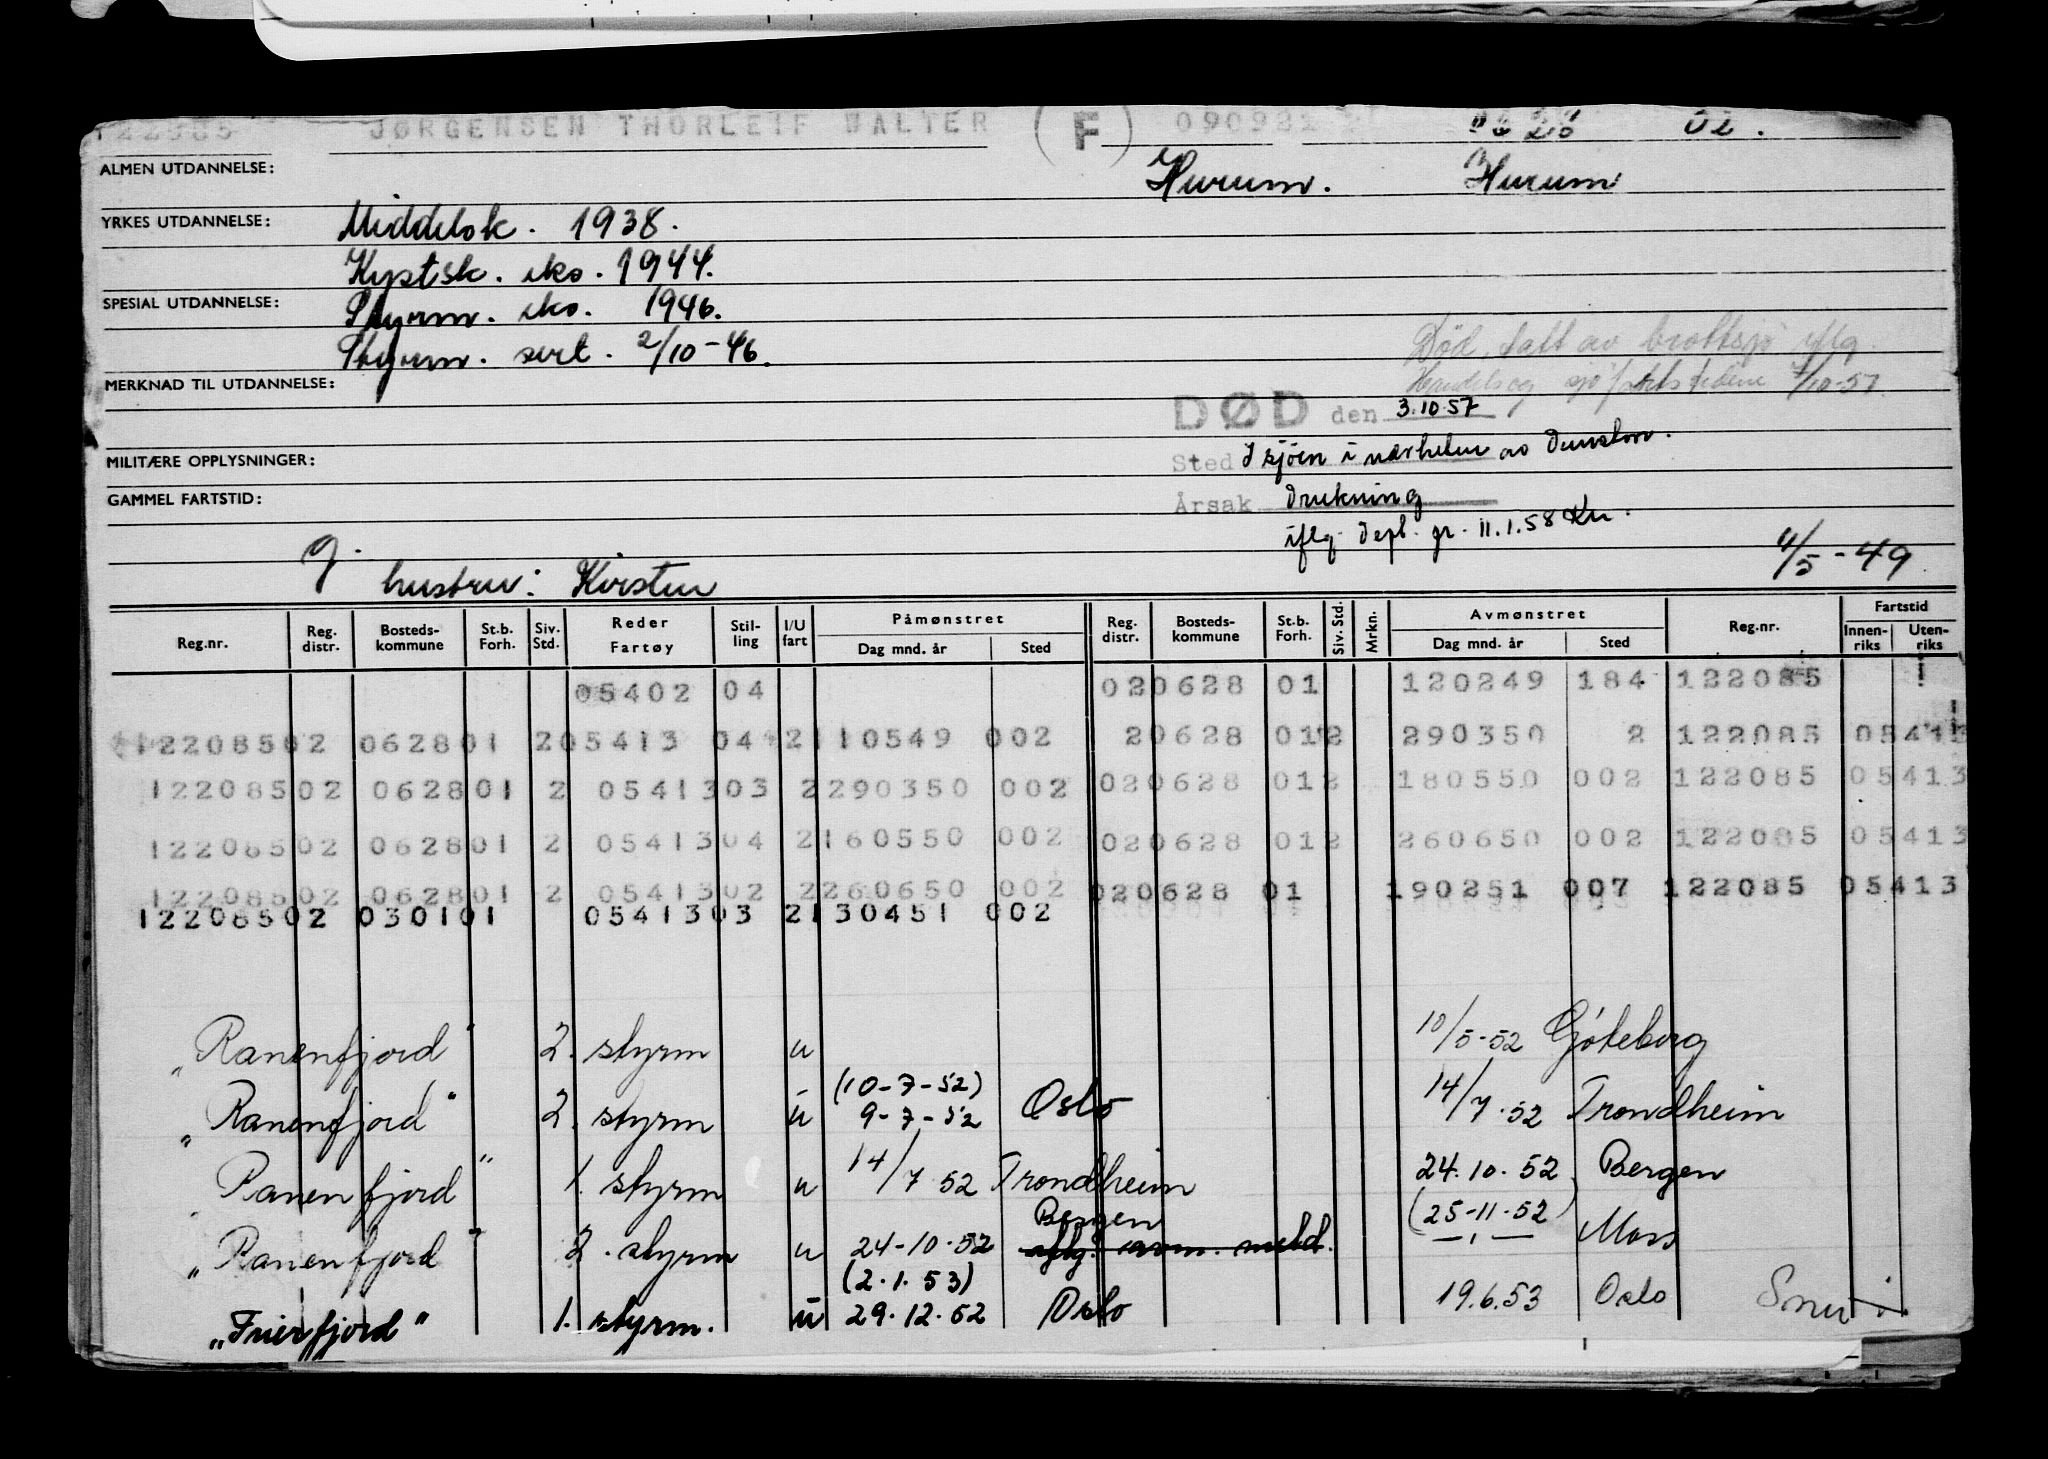 122085 JØRGENSEN THORLEIF WALTER (F) 090921 0628 02.
ALMEN UTDANNELSE: Hurum. Hurum
YRKES UTDANNELSE: Middelsk. 1938.
Kystsk. eks. 1944.
SPESIAL UTDANNELSE: Styrm. eks. 1946.
Styrm. sert. 2/10-46.
Død, tatt av brottsjø iflg.
MERKNAD TIL UTDANNELSE: Handels og sjøfartstidene 7/10-57.
DØD den 3.10.57
MILITÆRE OPPLYSNINGER: Sted I sjøen i nærheten av
GAMMEL FARTSTID: Årsak Drukning
iflg. Depl. gr. 11.1.58 Kn.
g. 4/5-49
hustru: Kirsten
Reg.nr. Reg. distr. Bosteds- kommune St.b. Forh. Siv. Std. Reder Fartøy Stil- ling I/U fart Påmønstret Dag mnd. år Sted Reg. distr. Bosteds- kommune St.b. Forh. Siv. Std. Mrkn. Avmønstret Dag mnd. år Sted Reg.nr. Fartstid Innen- riks Uten- riks
05402 04 020628 01 120249 184 122085
12208502 062801 205413 04 2110549 002 20628 012 290350 2 122085 05413
12208502 062801 2 0541303 2290350 002 020628 012 180550 002 122085 05413
12208502 062801 2 0541304 2160550 002 020628 012 260650 002 122085 05413
12208502 062801 2 0541302 2260650 002 020628 01 190251 007 122085 05413
12208502 030101 0541303 2130451 002
"Ranenfjord" 2. styrm u 10/5-52 Göteborg
(10-7-52)
"Ranenfjord" 2. styrm u 9-7-52 Oslo 14/7-52 Trondheim
"Ranenfjord" 1. styrm u 14/7 52 Trondheim 24.10.52 Bergen
Bergen (25-11-52)
"Ranenfjord" 2. styrm u 24-10-52 iflg. avm. meld. Moss
(2.1.53)
"Frierfjord" 1. styrm. u 29.12.52 Oslo 19.6.53 Oslo Snu